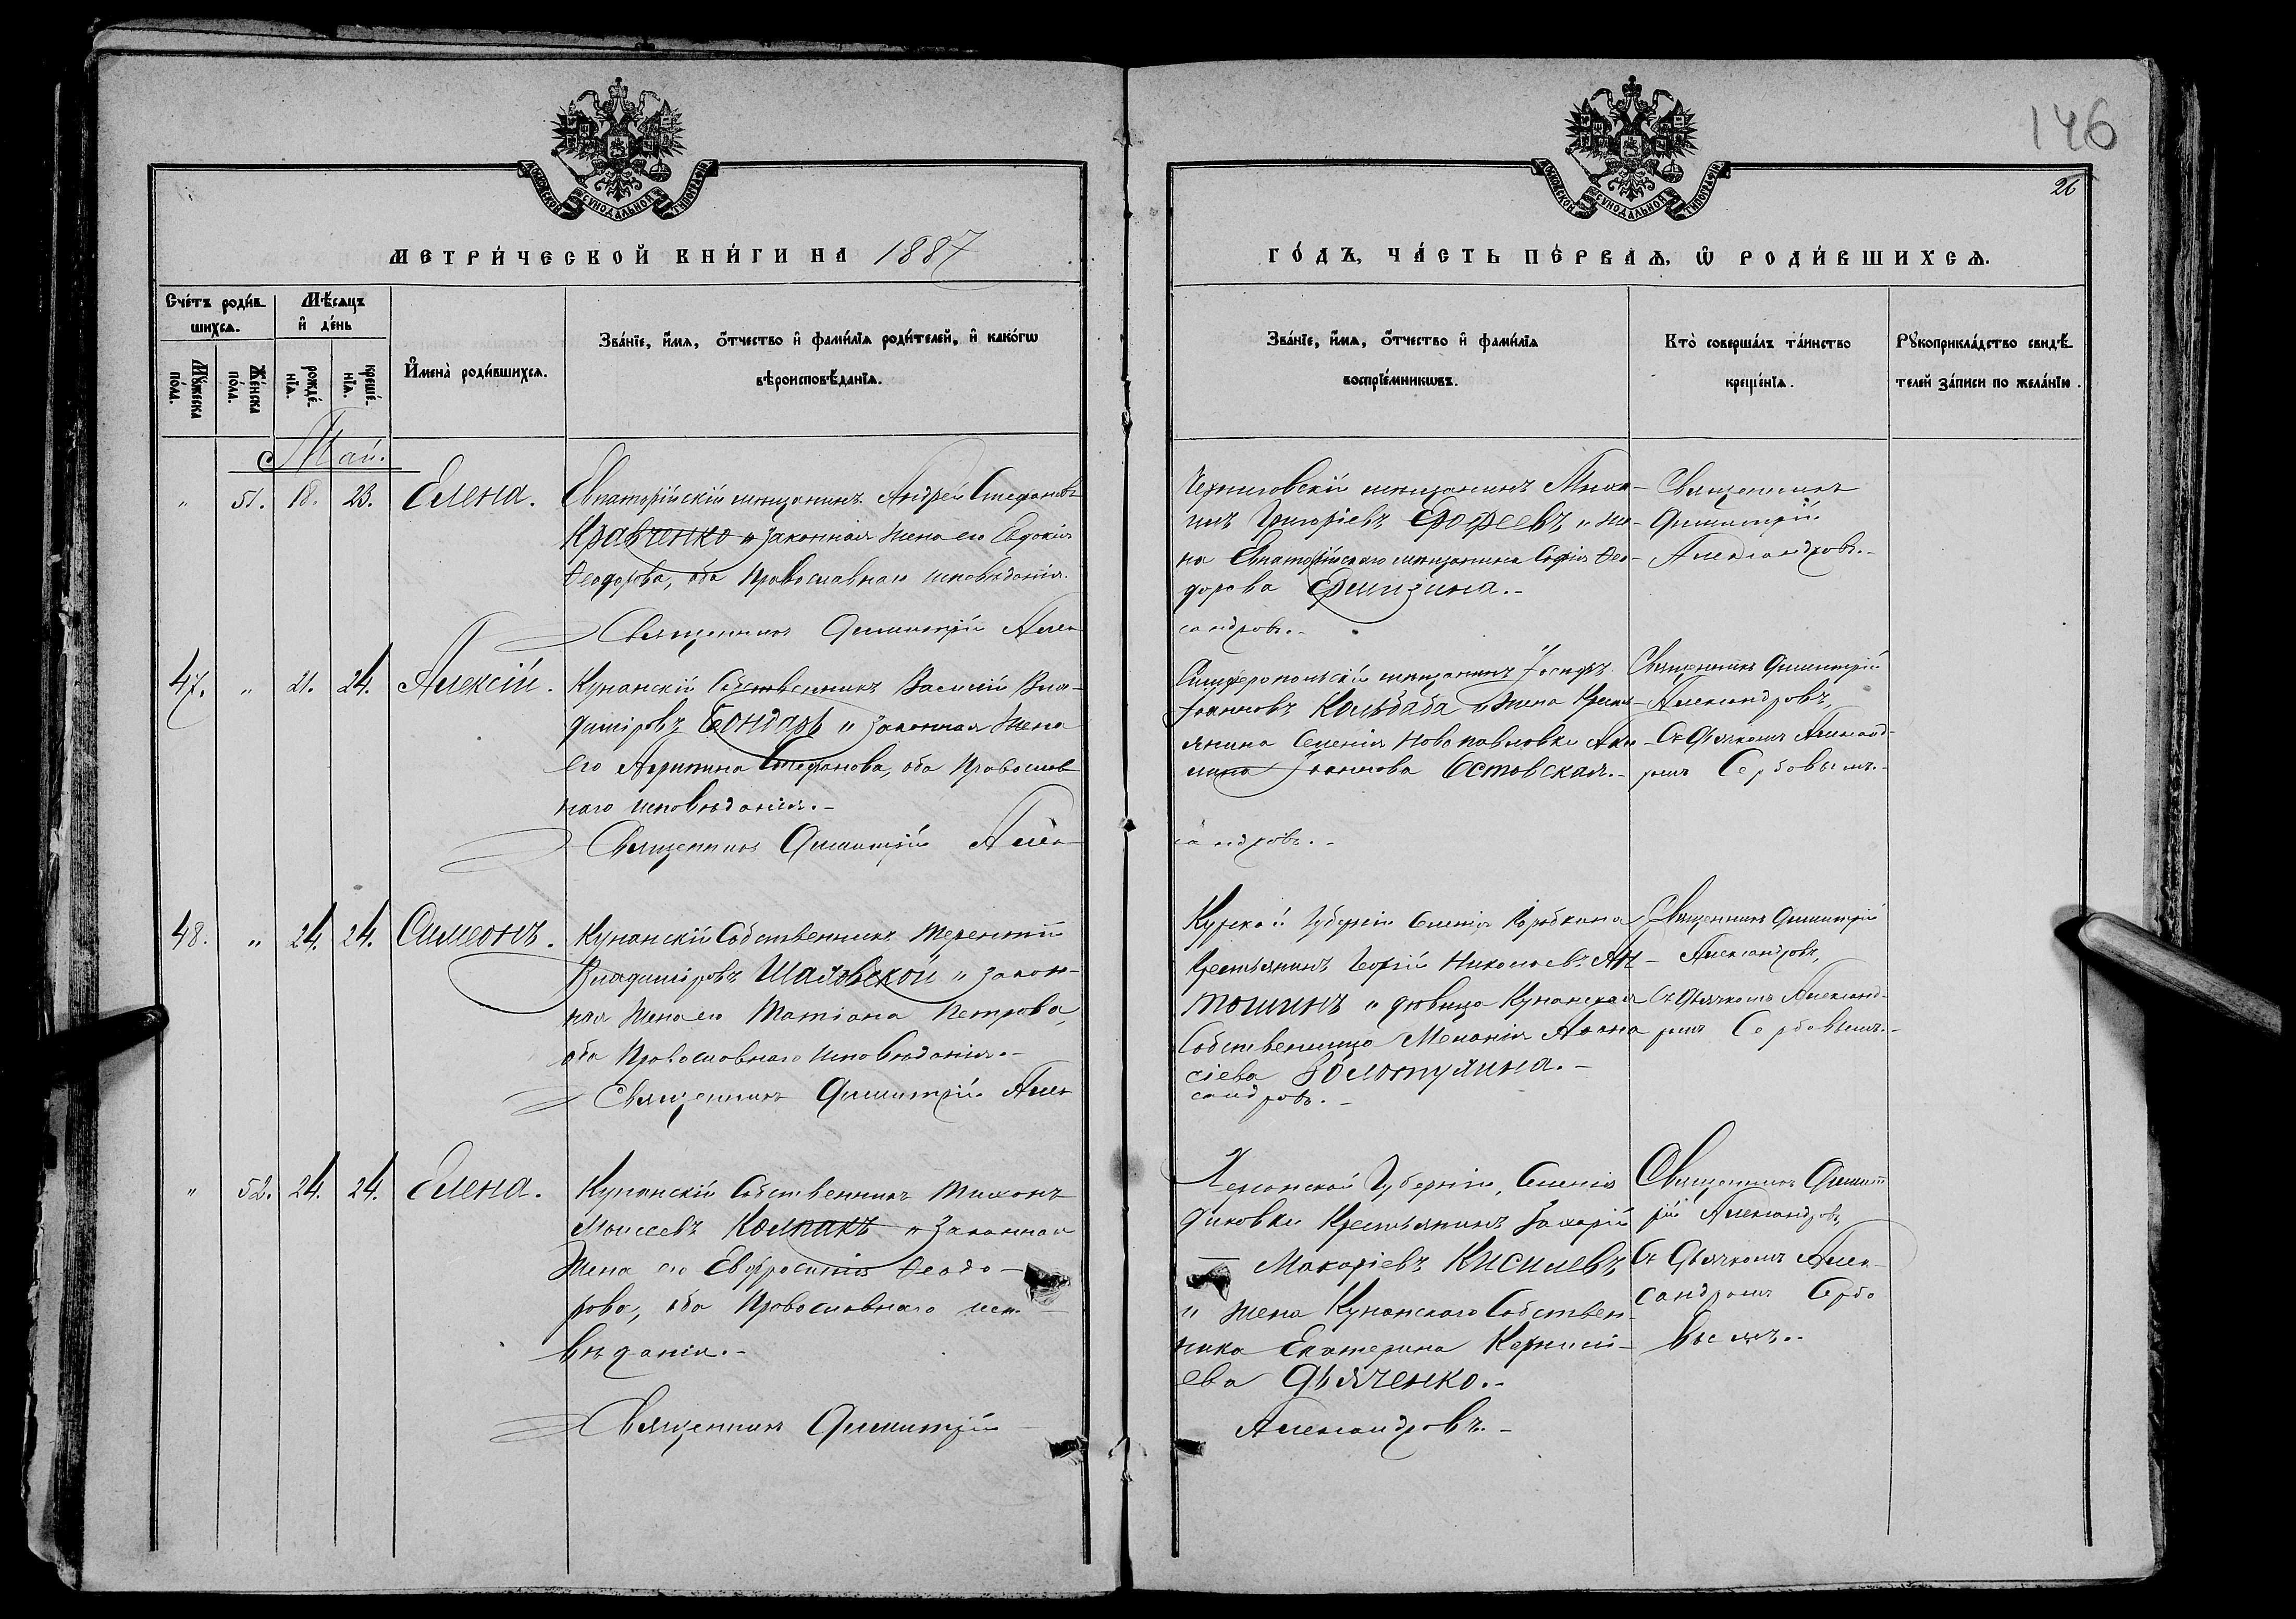 146
26
МОСКОВСКОЙ СѴНОДАЛЬНОЙ ТИПОГРАФІИ
МОСКОВСКОЙ СѴНОДАЛЬНОЙ ТИПОГРАФІИ
МЕТРИ́ЧЕСКОЙ КНИ́ГИ НА 1887
ГО́ДЪ, ЧА́СТЬ ПЕ́РВАѦ, Ѡ҆ РОДИ́ВШИХСѦ.
Сче́тъ роди́в
шихсѧ.
Мѣ́сѧцъ
и҆ де́нь
Мꙋ́жеска
по́ла.
Же́нска
по́ла.
рожде́-
нїѧ.
креще́-
нїѧ.
И҆мена̀ роди́вшихсѧ.
Зва́нїе, и҆́мѧ, ѻ҆́тчество и҆ фами́лїѧ роди́телей, и҆ како́гѡ
вѣроисповѣ́данїѧ.
Зва́нїе, и҆́мѧ, ѻ҆́тчество и҆ фами́лїѧ
воспрїе́мникѡвъ.
Кто̀ соверша́лъ та́инство
креще́нїѧ.
Рꙋкоприкла́дство свидѣ́-
телей за́писи по жела́нїю.
Май.
" 51. 18. 23. Елена.
Евпаторійскій мѣщанинъ Андрей Стефановъ
Кравченко и законная жена его Евдокія
Ѳеодорова, оба Православнаго исповѣданія.
Священникъ Димитрій Алек
Черниговскій мѣщанинъ Миха-
илъ Григоріевъ Ерофеевъ, и же-
на Евпаторійскаго мѣщанина Софія Ѳео-
дорова
сандровъ.-
Священникъ
Димитрій
Александровъ.-
47. " 21. 24. Алексій.
Куганскій Собственникъ Василій Вла-
диміровъ Бондарь и законная жена
его Агрипина Стефанова, оба Православ
наго исповѣданія.-
Священникъ Димитрій Алек-
Симферопольскій мѣщанинъ Іосифъ
Іоанновъ Кольбаба и жена Кресть-
янина Селенія Новопавловки Аки-
лина Іоаннова Остовская.-
сандровъ.-
Священникъ Димитрій
Александровъ,
Съ Дьячкомъ Александ-
ромъ Сербовымъ.-
48. " 24. 24. Симеонъ.
Куганскій Собственникъ Терентій
Владиміровъ и закон-
ная жена его Татіана Петрова,
оба Православнаго исповѣданія.-
Священникъ Димитрій Алек
Курской Губерніи Селенія
Крестьянинъ Георгій Николаевъ Ан-
тошинъ и дѣвица Куганская
Собственница Меланія Аѳана
сіева Золотухина.-
сандровъ.-
Священникъ Димитрій
Александровъ,
Съ Дьячкомъ Александ-
ромъ Сербовымъ.-
" 52. 24. 24. Елена.
Куганскій Собственникъ Тихонъ
Моисеевъ Колпакъ и законная
жена его Евфросинія Ѳеодо-
рова, оба Православнаго испо-
вѣданія.-
Священникъ Димитрій
Херсонской Губерніи, Селенія
Диковки Крестьянинъ Захарій
Макаріевъ Кисилевъ
и жена Куганскаго Собствен-
ника Екатерина Корнилі-
ева Дьяченко.-
Александровъ.-
Священникъ Димит
рій Александровъ
Съ Дьячкомъ Алек-
сандромъ Серба
вымъ.-